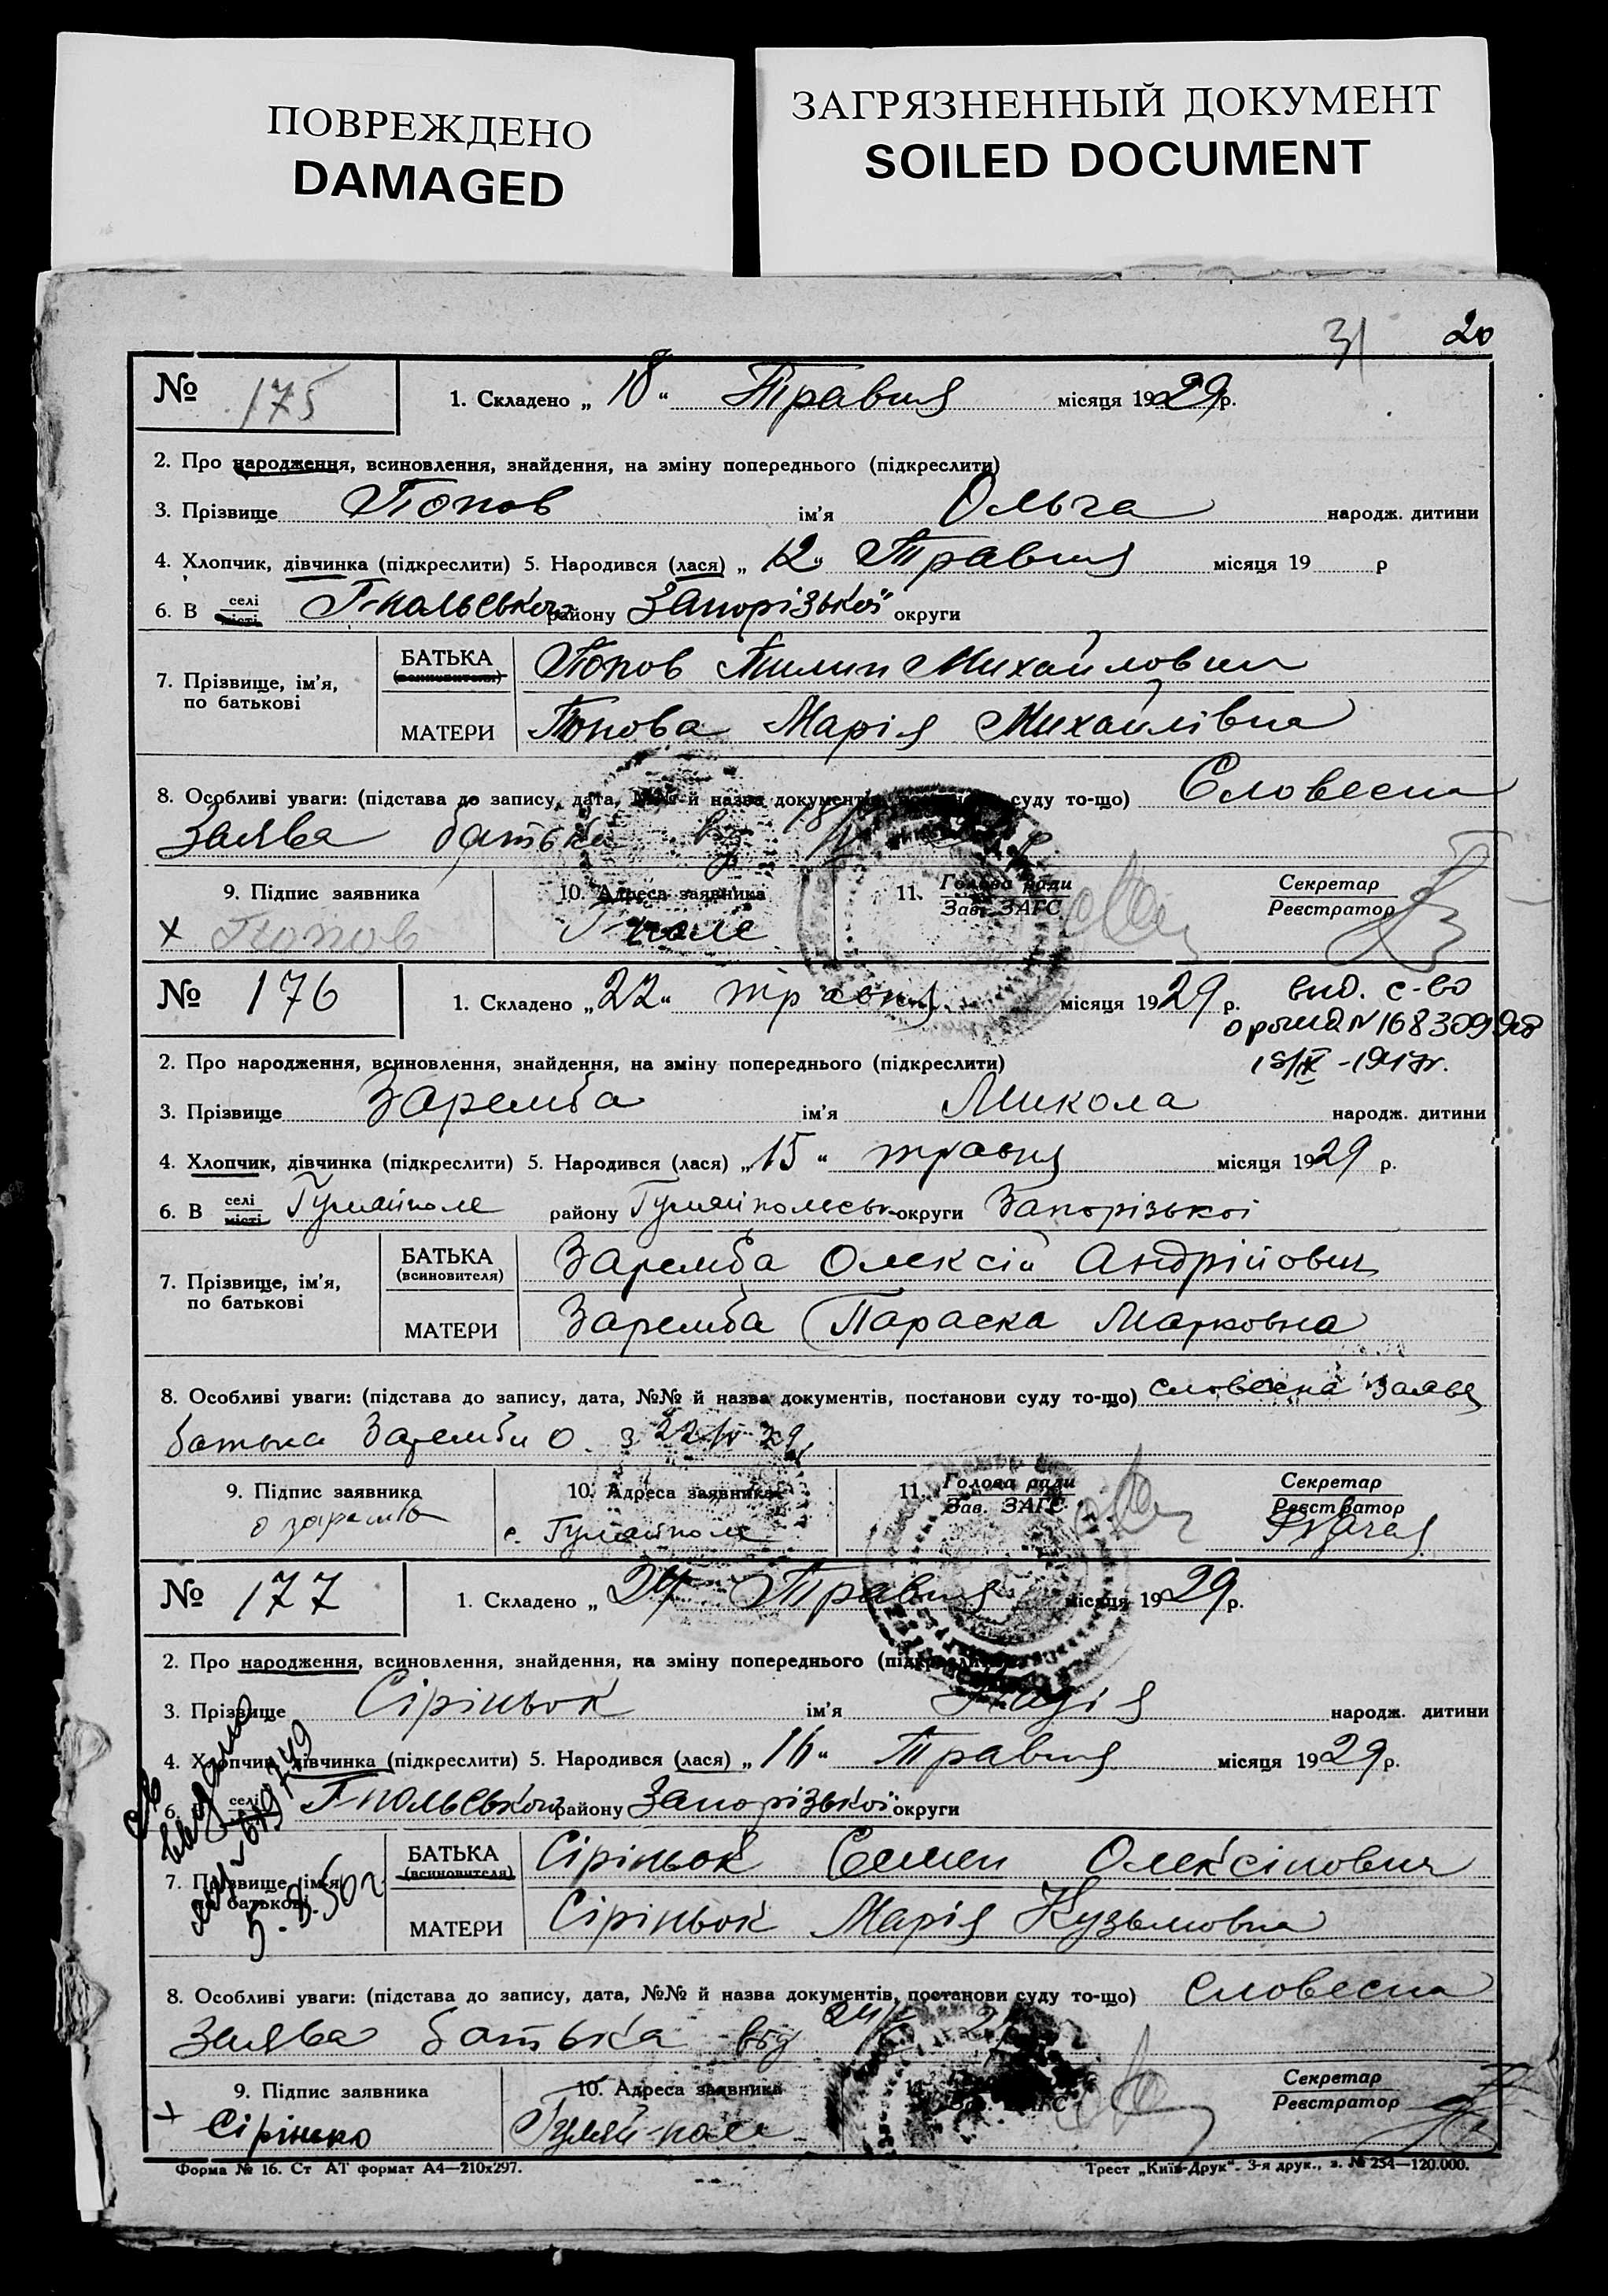 ПОВРЕЖДЕНО
DAMAGED
ЗАГРЯЗНЕННЫЙ ДОКУМЕНТ
SOILED DOCUMENT
31 20
№ 175 1. Складено „ 18 “ Травня місяця 1929 р.
2. Про народження, всиновлення, знайдення, на зміну попереднього (підкреслити)
3. Прізвище Попов ім'я Ольга народж. дитини
4. Хлопчик, дівчинка (підкреслити) 5. Народився (лася) „ 12 “ Травня місяця 19 р
6. В селі місті Г-польського району Запорізької округи
7. Прізвище, ім'я, по батькові
БАТЬКА Попов Михайлович
МАТЕРИ Попова Марія Михайлівна
8. Особливі уваги: (підстава до запису, дата, №№ й назва документів, суду то-що) Словесна
Заява батька від
9. Підпис заявника 10. Адреса заявника 11. Голова ради Зав. ЗАГС Секретар Реєстратор
х Попов Г-поле
№ 176 1. Складено „ 22 “ травня місяця 1929 р. вид. с-во
о рожд N 168309
2. Про народження, всиновлення, знайдення, на зміну попереднього (підкреслити)
3. Прізвище Заремба ім'я Микола народж. дитини
4. Хлопчик, дівчинка (підкреслити) 5. Народився (лася) „ 15 “ травня місяця 1929 р.
6. В селі місті Гуляйполе району Гуляйпольськ округи Запорізької
7. Прізвище, ім'я, по батькові
БАТЬКА (всиновителя) Заремба Олексій Андрійович
МАТЕРИ Заремба Параска Марковна
8. Особливі уваги: (підстава до запису, дата, №№ й назва документів, постанови суду то-що) словесна заява
батька Заремби О. з 22/V 29
9. Підпис заявника 10. Адреса заявника 11. Голова ради Зав. ЗАГС Секретар Реєстратор
О заремба с. Гуляйполе
№ 177 1. Складено „ 24 Травня місяця 1929 р.
2. Про народження, всиновлення, знайдення, на зміну попереднього
3. Прізвище Сіріньок ім'я Надія народж. дитини
4. Хлопчик, дівчинка (підкреслити) 5. Народився (лася) „ 16 “ Травня місяця 1929 р.
6. В селі Г-польського району Запорізької округи
7. Прізвище, ім'я, по батькові
БАТЬКА (всиновителя) Сіріньок Семен Олексійович
МАТЕРИ Сіріньок Марія Кузьмовна
8. Особливі уваги: (підстава до запису, дата, №№ й назва документів, постанови суду то-що) Словесна
Заява батька від 24/V 29
9. Підпис заявника 10. Адреса заявника Секретар Реєстратор
х Сірінько Гуляй-поле
Форма № 16. Ст АТ формат А4—210х297. Трест „Київ-Друк“. 3-я друк., з. № 254—120.000.